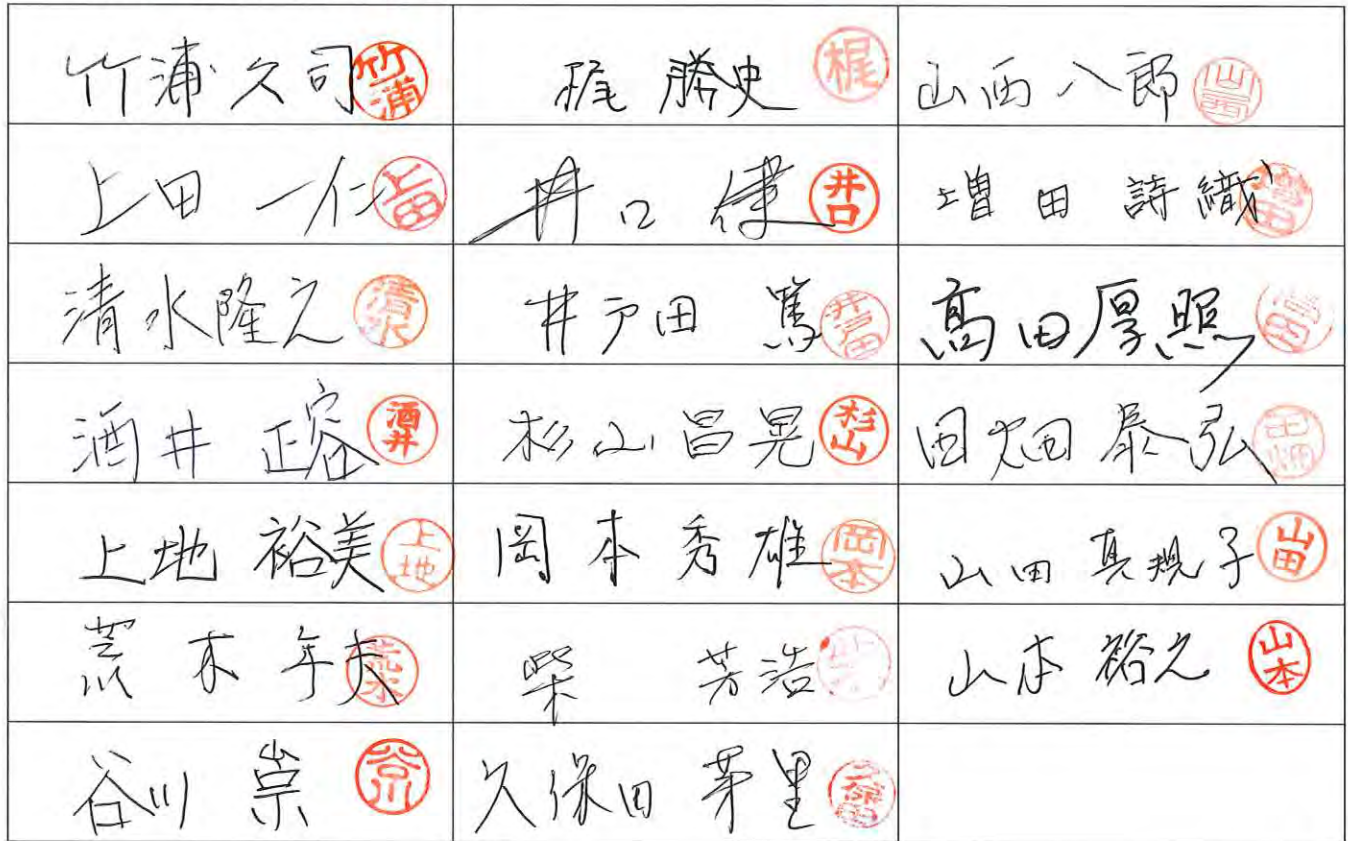 竹浦久司 竹浦 梶 勝史 梶 山西八郎 山西
上田 一仁 上田 井口 健 井口 増田 詩織 増田
清水隆之 清水 井戸田 篤 井戸田 髙田厚照
酒井 正容 酒井 杉山昌晃 杉山 田畑泰弘 田畑
上地 裕美 上地 岡本秀雄 岡本 山田真規子 山田
荒木 年夫 荒木 柴 芳浩 山本裕之 山本
谷川 崇 谷川 久保田 芽里 久保田